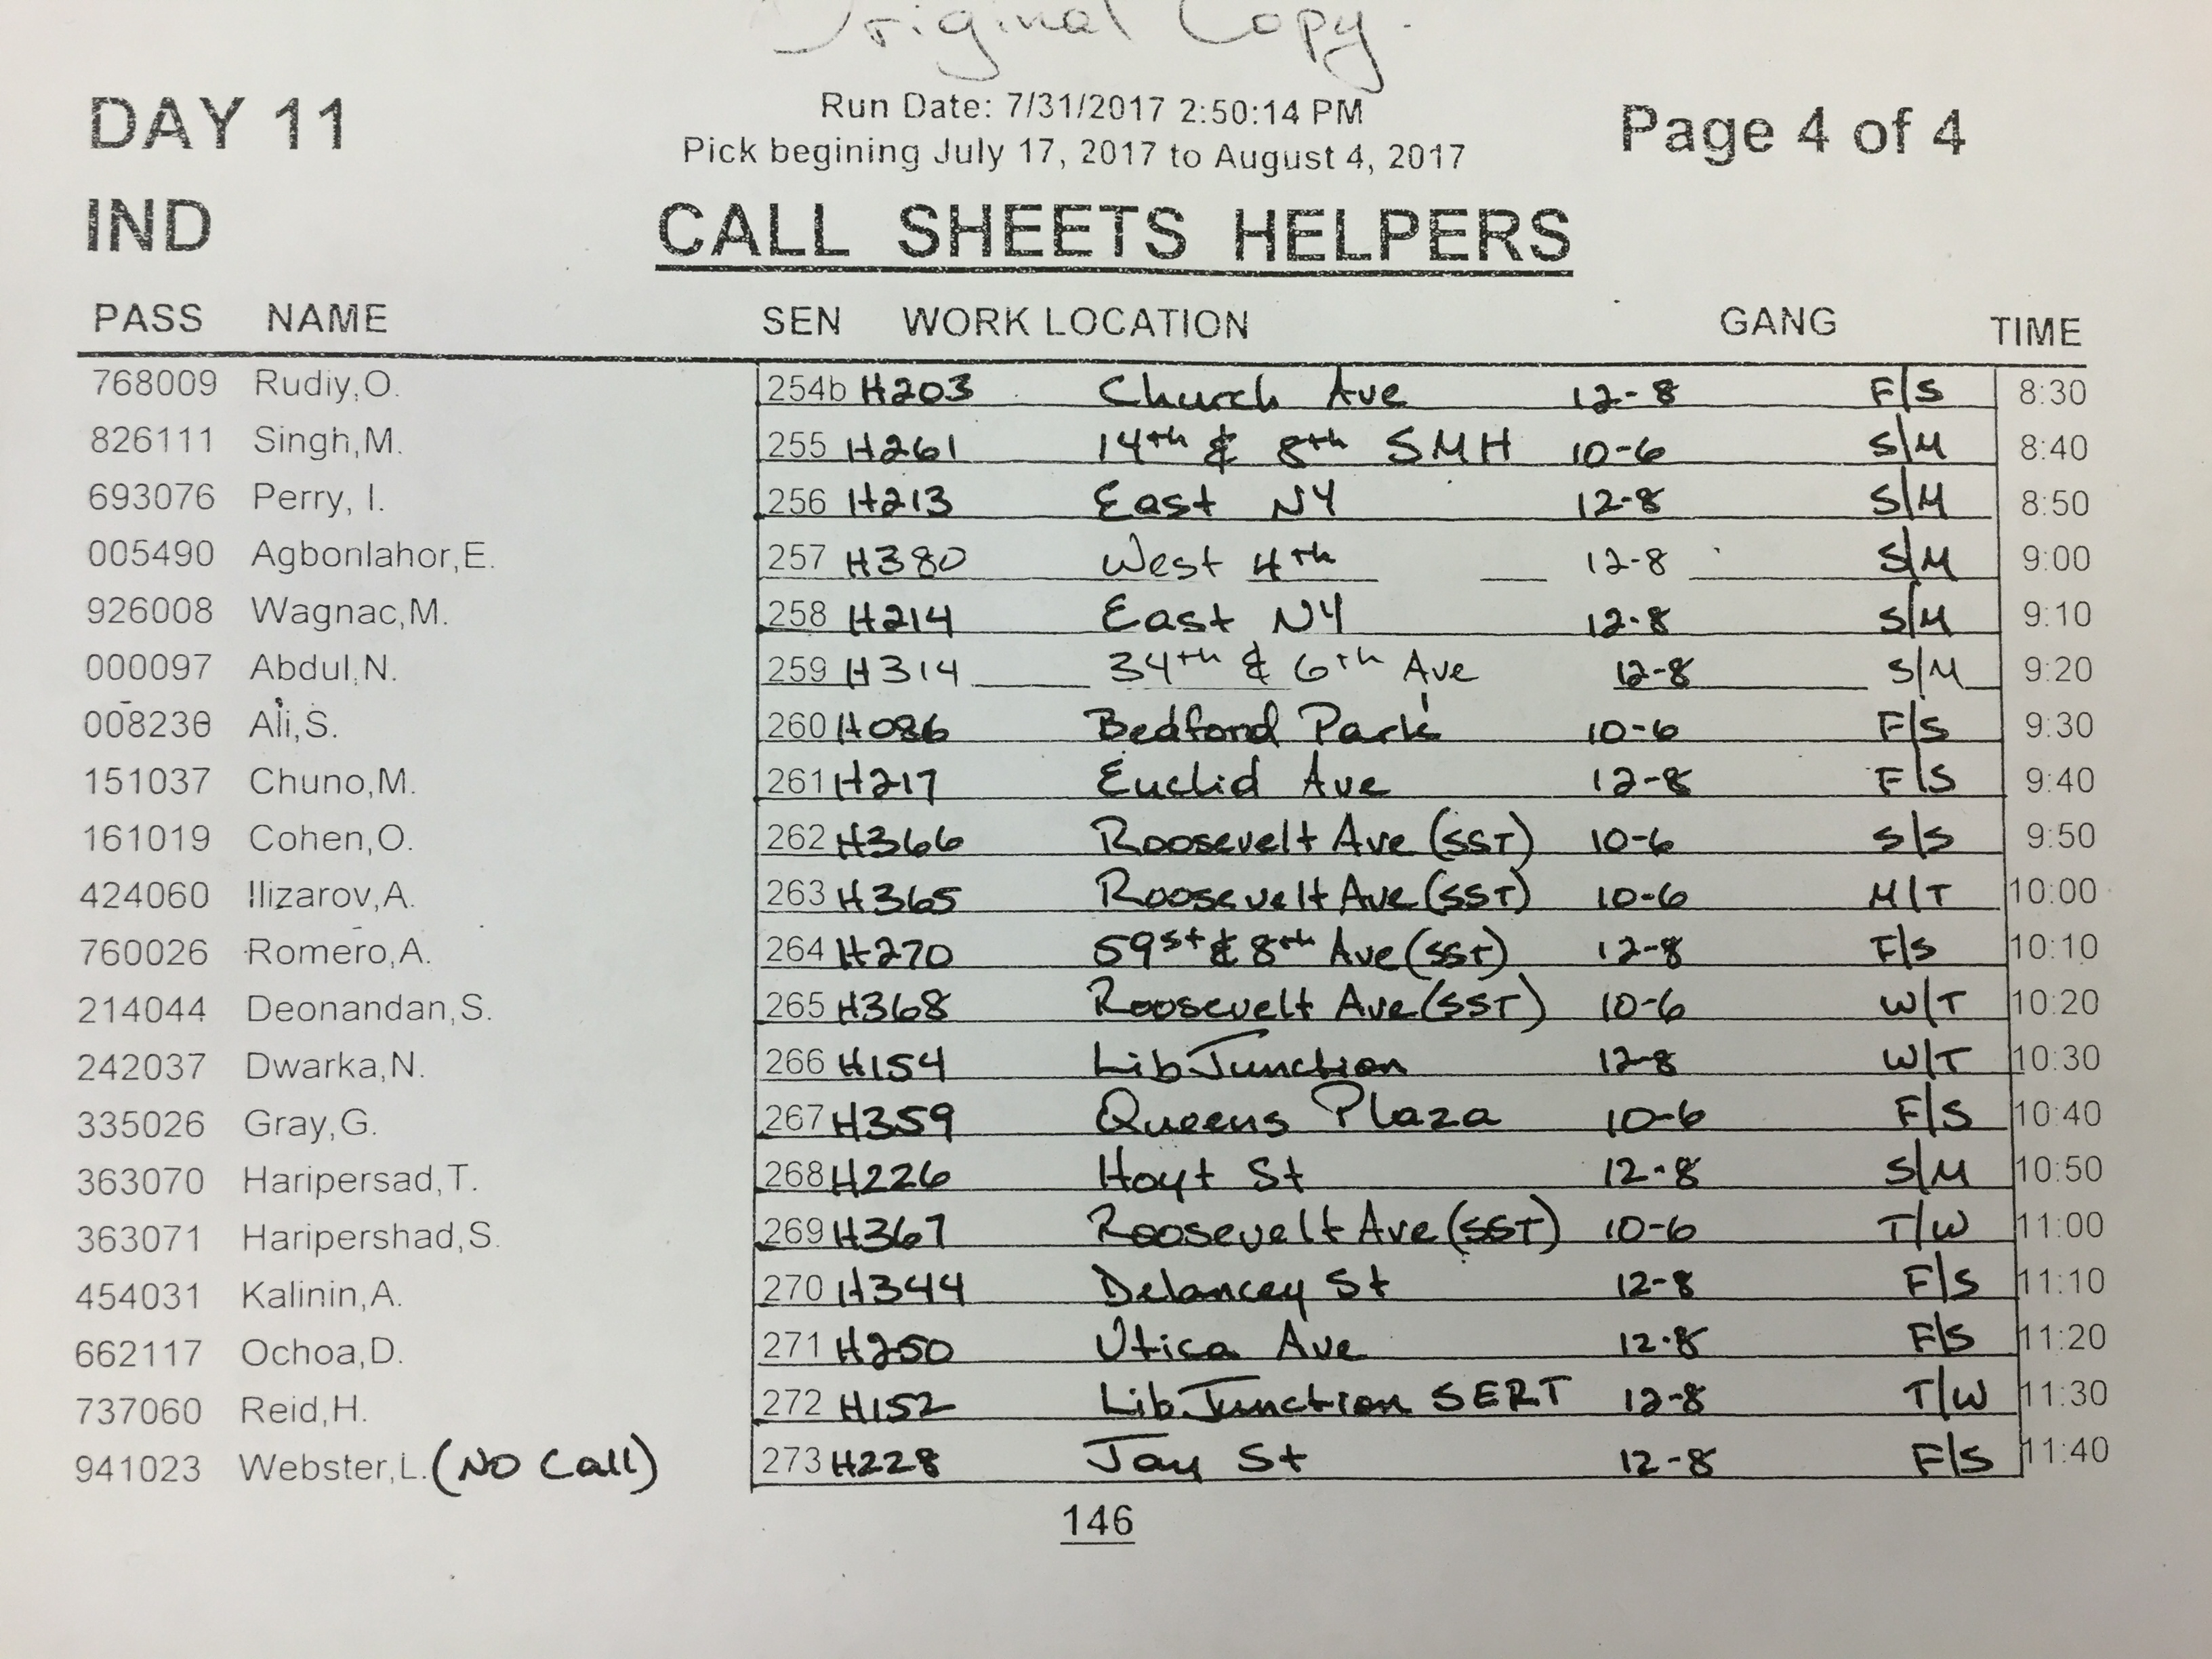 Original Copy.
DAY 11
Run Date: 7/31/2017 2:50:14 PM
Page 4 of 4
Pick begining July 17, 2017 to August 4, 2017
IND
CALL SHEETS HELPERS
PASS NAME SEN WORK LOCATION GANG TIME
768009 Rudiy,O. 254b H203 Church Ave 12-8 F/S 8:30
826111 Singh,M. 255 H261 14th & 8th SMH 10-6 S/M 8:40
693076 Perry, I. 256 H213 East NY 12-8 S/M 8:50
005490 Agbonlahor,E. 257 H380 West 4th 12-8 S/M 9:00
926008 Wagnac,M. 258 H214 East NY 12-8 S/M 9:10
000097 Abdul,N. 259 H314 34th & 6th Ave 12-8 S/M 9:20
008238 Ali,S. 260 H086 Bedford Park 10-6 F/S 9:30
151037 Chuno,M. 261 H217 Euclid Ave 12-8 F/S 9:40
161019 Cohen,O. 262 H366 Roosevelt Ave (SST) 10-6 S/S 9:50
424060 Ilizarov,A. 263 H365 Roosevelt Ave (SST) 10-6 M/T 10:00
760026 Romero,A. 264 H270 59st & 8th Ave (SST) 12-8 F/S 10:10
214044 Deonandan,S. 265 H368 Roosevelt Ave (SST) 10-6 W/T 10:20
242037 Dwarka,N. 266 H154 Lib Junction 12-8 W/T 10:30
335026 Gray,G. 267 H359 Queens Plaza 10-6 F/S 10:40
363070 Haripersad,T. 268 H226 Hoyt St 12-8 S/M 10:50
363071 Haripershad,S. 269 H367 Roosevelt Ave (SST) 10-6 T/W 11:00
454031 Kalinin,A. 270 H344 Delancey St 12-8 F/S 11:10
662117 Ochoa,D. 271 H250 Utica Ave 12-8 F/S 11:20
737060 Reid,H. 272 H152 Lib Junction SERT 12-8 T/W 11:30
941023 Webster,L. (NO Call) 273 H228 Jay St 12-8 F/S 11:40
146